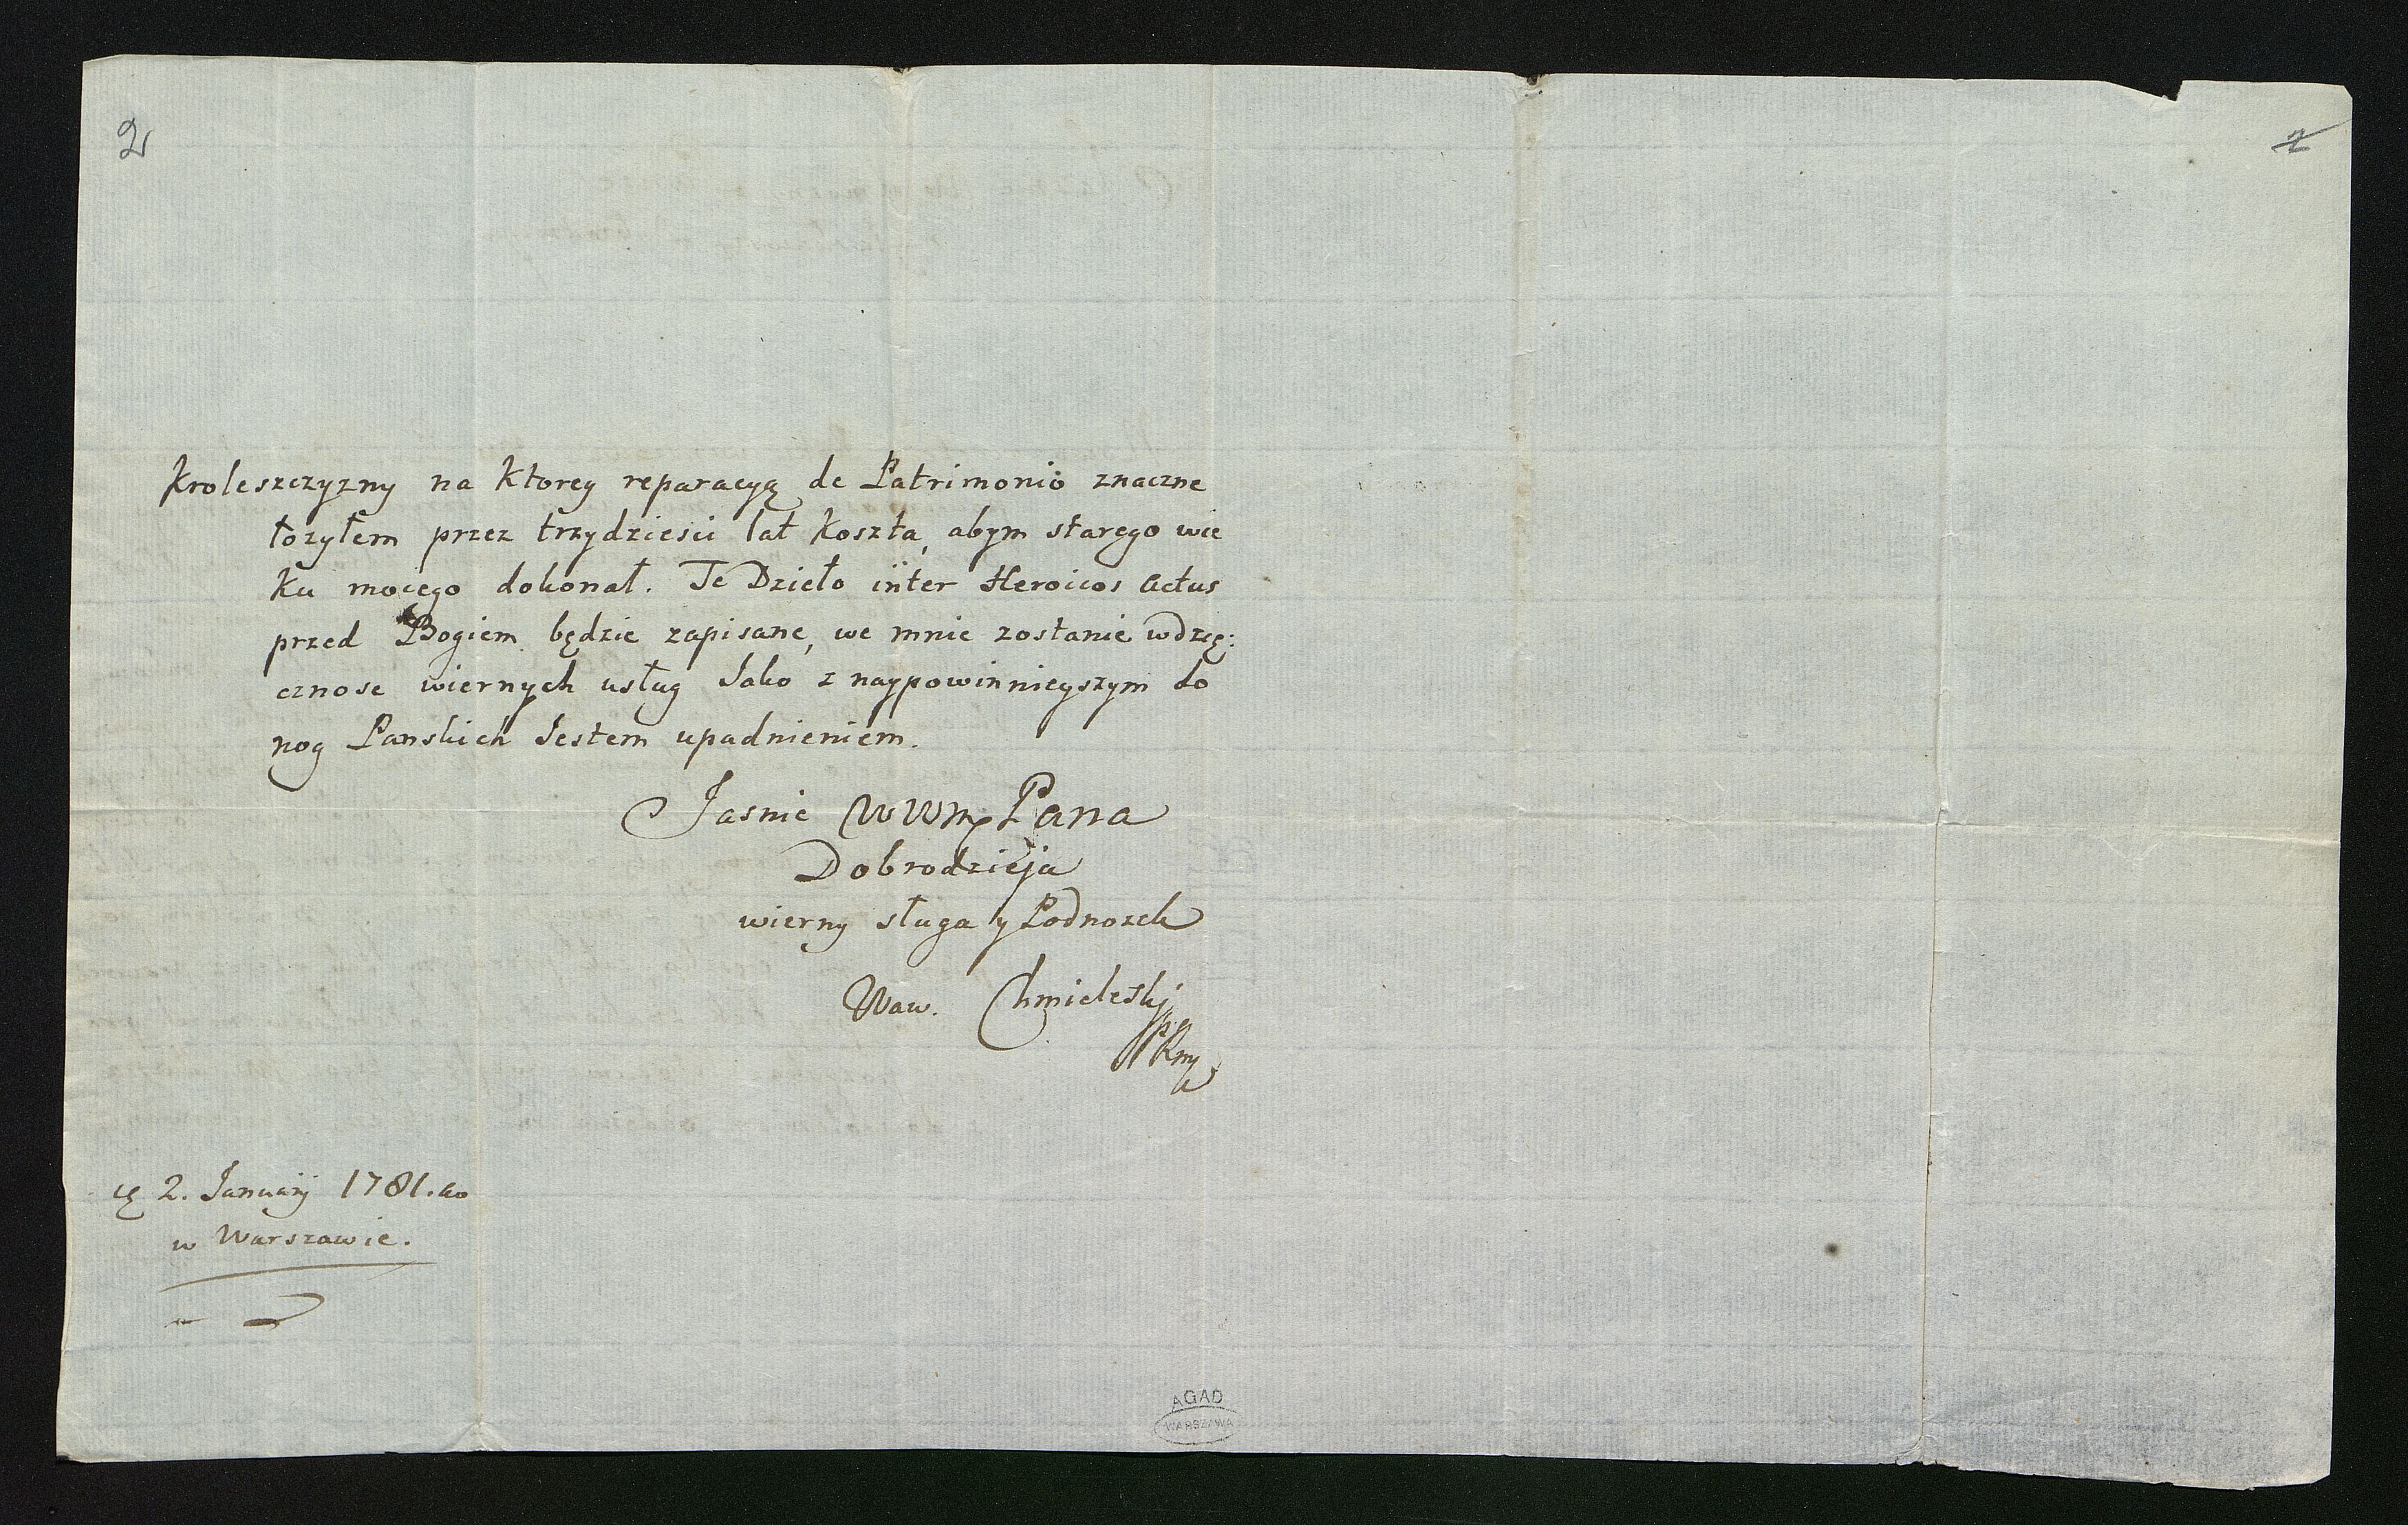 2
Kroleszczyzny na Ktorey reparacyą de Patrimonio znaczne
łozyłem przez trzydziesci lat Koszta, abym starego wie
ku mojego dokonał. Te Dzieło inter Heroicos Actus
przed Bogiem będzie zapisane, we mnie zostanie wdzię:
cznosc wiernych usług Jako z naypowinnieyszym do
nog Panskich Jestem upadnieniem.
Jasnie WWm Pana
Dobrodzieja
wierny sługa y Podnozek
Waw. Chmieleski
2. Januarij 1781.
w Warszawie.
AGAD
WARSZAWA